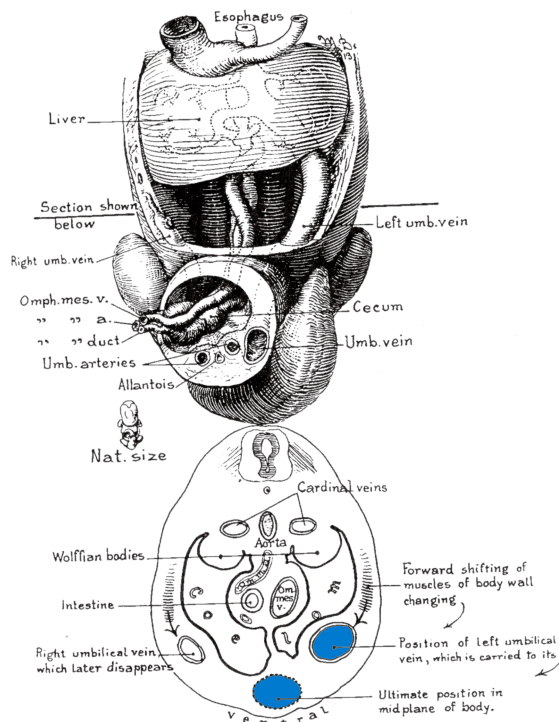 Esophagus
Liver
Section shown
below
Left umb. vein
Right umb. vein
Omph. mes. v.
" " a.
" " duct
Cecum
Umb. vein
Umb. arteries
Allantois
Nat. size
Cardinal veins
Aorta
Wolffian bodies
Forward shifting of
muscles of body wall
changing
Om.
mes.
v.
Intestine
Right umbilical vein
which later disappears
Position of left umbilical
vein, which is carried to its
Ultimate position in
midplane of body.
Ventral